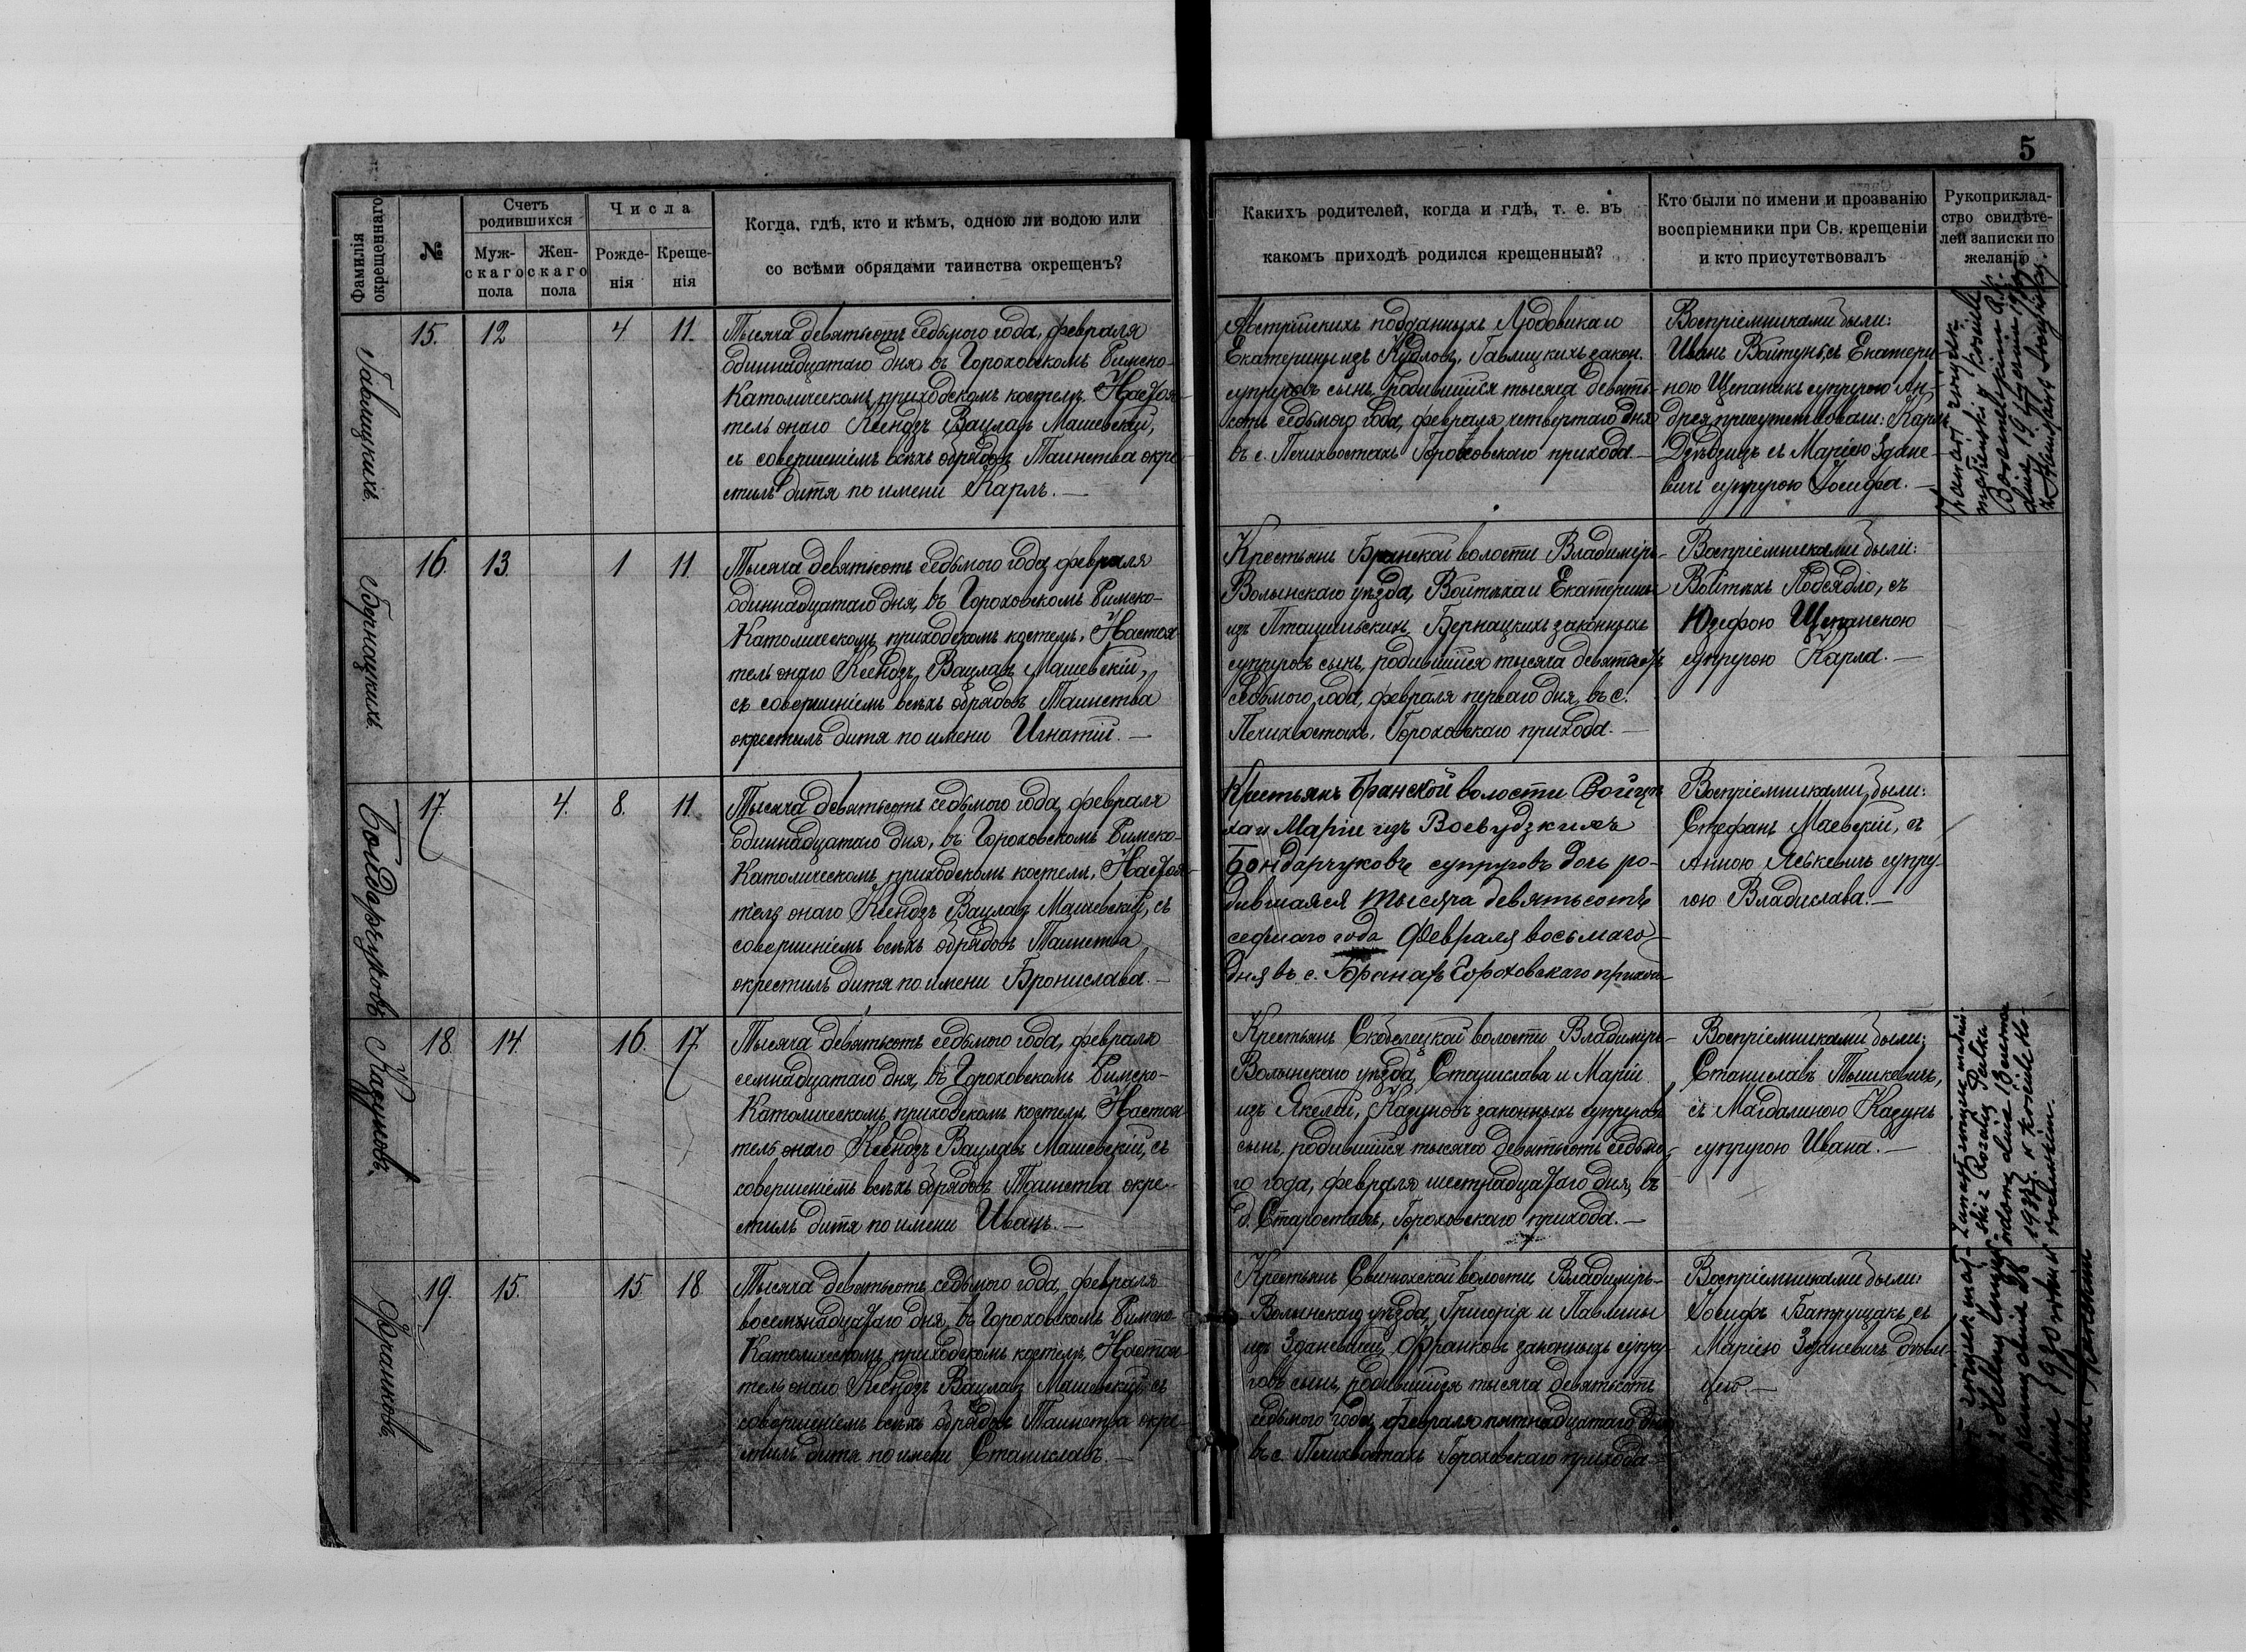 5
Фамилія окрещеннаго
№
Счетъ родившихся
Мужскаго пола
Женскаго пола
Числа
Рожденія
Крещенія
Когда, гдѣ, кто и кѣмъ, одною ли водою или
со всѣми обрядами таинства окрещенъ?
Какихъ родителей, когда и гдѣ, т. е. въ
какомъ приходѣ родился крещенный?
Кто были по имени и прозванію
воспріемники при Св. крещеніи
и кто присутствовалъ
Рукоприклад-
ство свидѣте-
лей записки по
желанію
Гавлицкихъ
15. 12 4 11.
Тысяча девятьсотъ седьмого года, февраля
одиннадцатаго дня, въ Гороховскомъ Римско-
Католическомъ приходскомъ костелѣ, Настоя-
тель онаго Ксендзъ Вацлавъ Машевскій,
съ совершеніемъ всѣхъ обрядовъ Таинства окре-
стилъ дитя по имени Карлъ. —
Австрійскихъ подданныхъ Людовика и
Екатерины изъ Гавлицкихъ закон.
супруговъ сынъ, родившійся тысяча девять-
сотъ седьмого года, февраля четвертаго дня
въ с. Печихвостахъ Гороховскаго прихода. —
Воспріемниками были:
Иванъ съ Екатери-
ною Щепаникъ супругою Ан-
дрея, присутствовали: Карлъ
съ Маріею Здане-
вичъ супругою Іосифа. —
Бернацкихъ.
16. 13. 1 11.
Тысяча девятьсотъ седьмого года, февраля
одиннадцатаго дня, въ Гороховскомъ Римско-
Католическомъ приходскомъ костелѣ, Настоя-
тель онаго Ксендзъ Вацлавъ Машевскій,
съ совершеніемъ всѣхъ обрядовъ Таинства
окрестилъ дитя по имени Игнатій. —
Крестьянъ Бранской волости Владиміръ-
Волынскаго уѣзда, Войтѣха и Екатерины
изъ Бернацкихъ законныхъ
супруговъ сынъ, родившійся тысяча девятьсотъ
седьмого года, февраля перваго дня, въ с.
Печихвостахъ, Гороховскаго прихода. —
Воспріемниками были:
Войтѣхъ Подсядло, съ
Юзефою Щепаненою
супругою Карла. —
Бондарчуковъ
17. 4. 8. 11.
Тысяча девятьсотъ седьмого года, февраля
одиннадцатаго дня, въ Гороховскомъ Римско-
Католическомъ приходскомъ костелѣ, Настоя-
тель онаго Ксендзъ Вацлавъ Машевскій, съ
совершеніемъ всѣхъ обрядовъ Таинства
окрестилъ дитя по имени Бронислава. —
Крестьянъ Бранской волости
и Маріи изъ
Бондарчуковъ супруговъ дочь ро-
дившаяся тысяча девятьсотъ
года Февраля восьмаго
дня въ с. Бранахъ Гороховскаго
Воспріемниками были:
Стефанъ Маевскій, съ
Анною Яскевичъ супру-
гою Владислава. —
Казуновъ.
18 14. 16. 17.
Тысяча девятьсотъ седьмого года, февраля
семнадцатаго дня, въ Гороховскомъ Римско-
Католическомъ приходскомъ костелѣ, Настоя-
тель онаго Ксендзъ Вацлавъ Машевскій, съ
совершеніемъ всѣхъ обрядовъ Таинства окре-
стилъ дитя по имени Иванъ. —
Крестьянъ Скобелецкой волости Владиміръ-
Волынскаго уѣзда, Станислава и Маріи
изъ Казуновъ законныхъ супруговъ
сынъ, родившійся тысяча девятьсотъ седьмо-
го года, февраля шестнадцатаго дня, въ
д. Староставъ, Гороховскаго прихода. —
Воспріемниками были:
Станиславъ Тышкевичъ,
съ Магдалиною Казунъ
супругою Ивана. —
Франковъ
19. 15. 15. 18.
Тысяча девятьсотъ седьмого года, февраля
восемнадцатаго дня, въ Гороховскомъ Римско-
Католическомъ приходскомъ костелѣ, Настоя-
тель онаго Ксендзъ Вацлавъ Машевскій, съ
совершеніемъ всѣхъ обрядовъ Таинства окре-
стилъ дитя по имени Станиславъ. —
Крестьянъ Свинюхской волости, Владиміръ-
Волынскаго уѣзда, Григорія и Павлины
изъ Франковъ законныхъ супру-
говъ сынъ, родившійся тысяча девятьсотъ
седьмого года, февраля пятнадцатаго дня
въ с. Печихвостахъ Гороховскаго прихода. —
Воспріемниками были:
Іосифъ съ
Маріею Зданевичъ